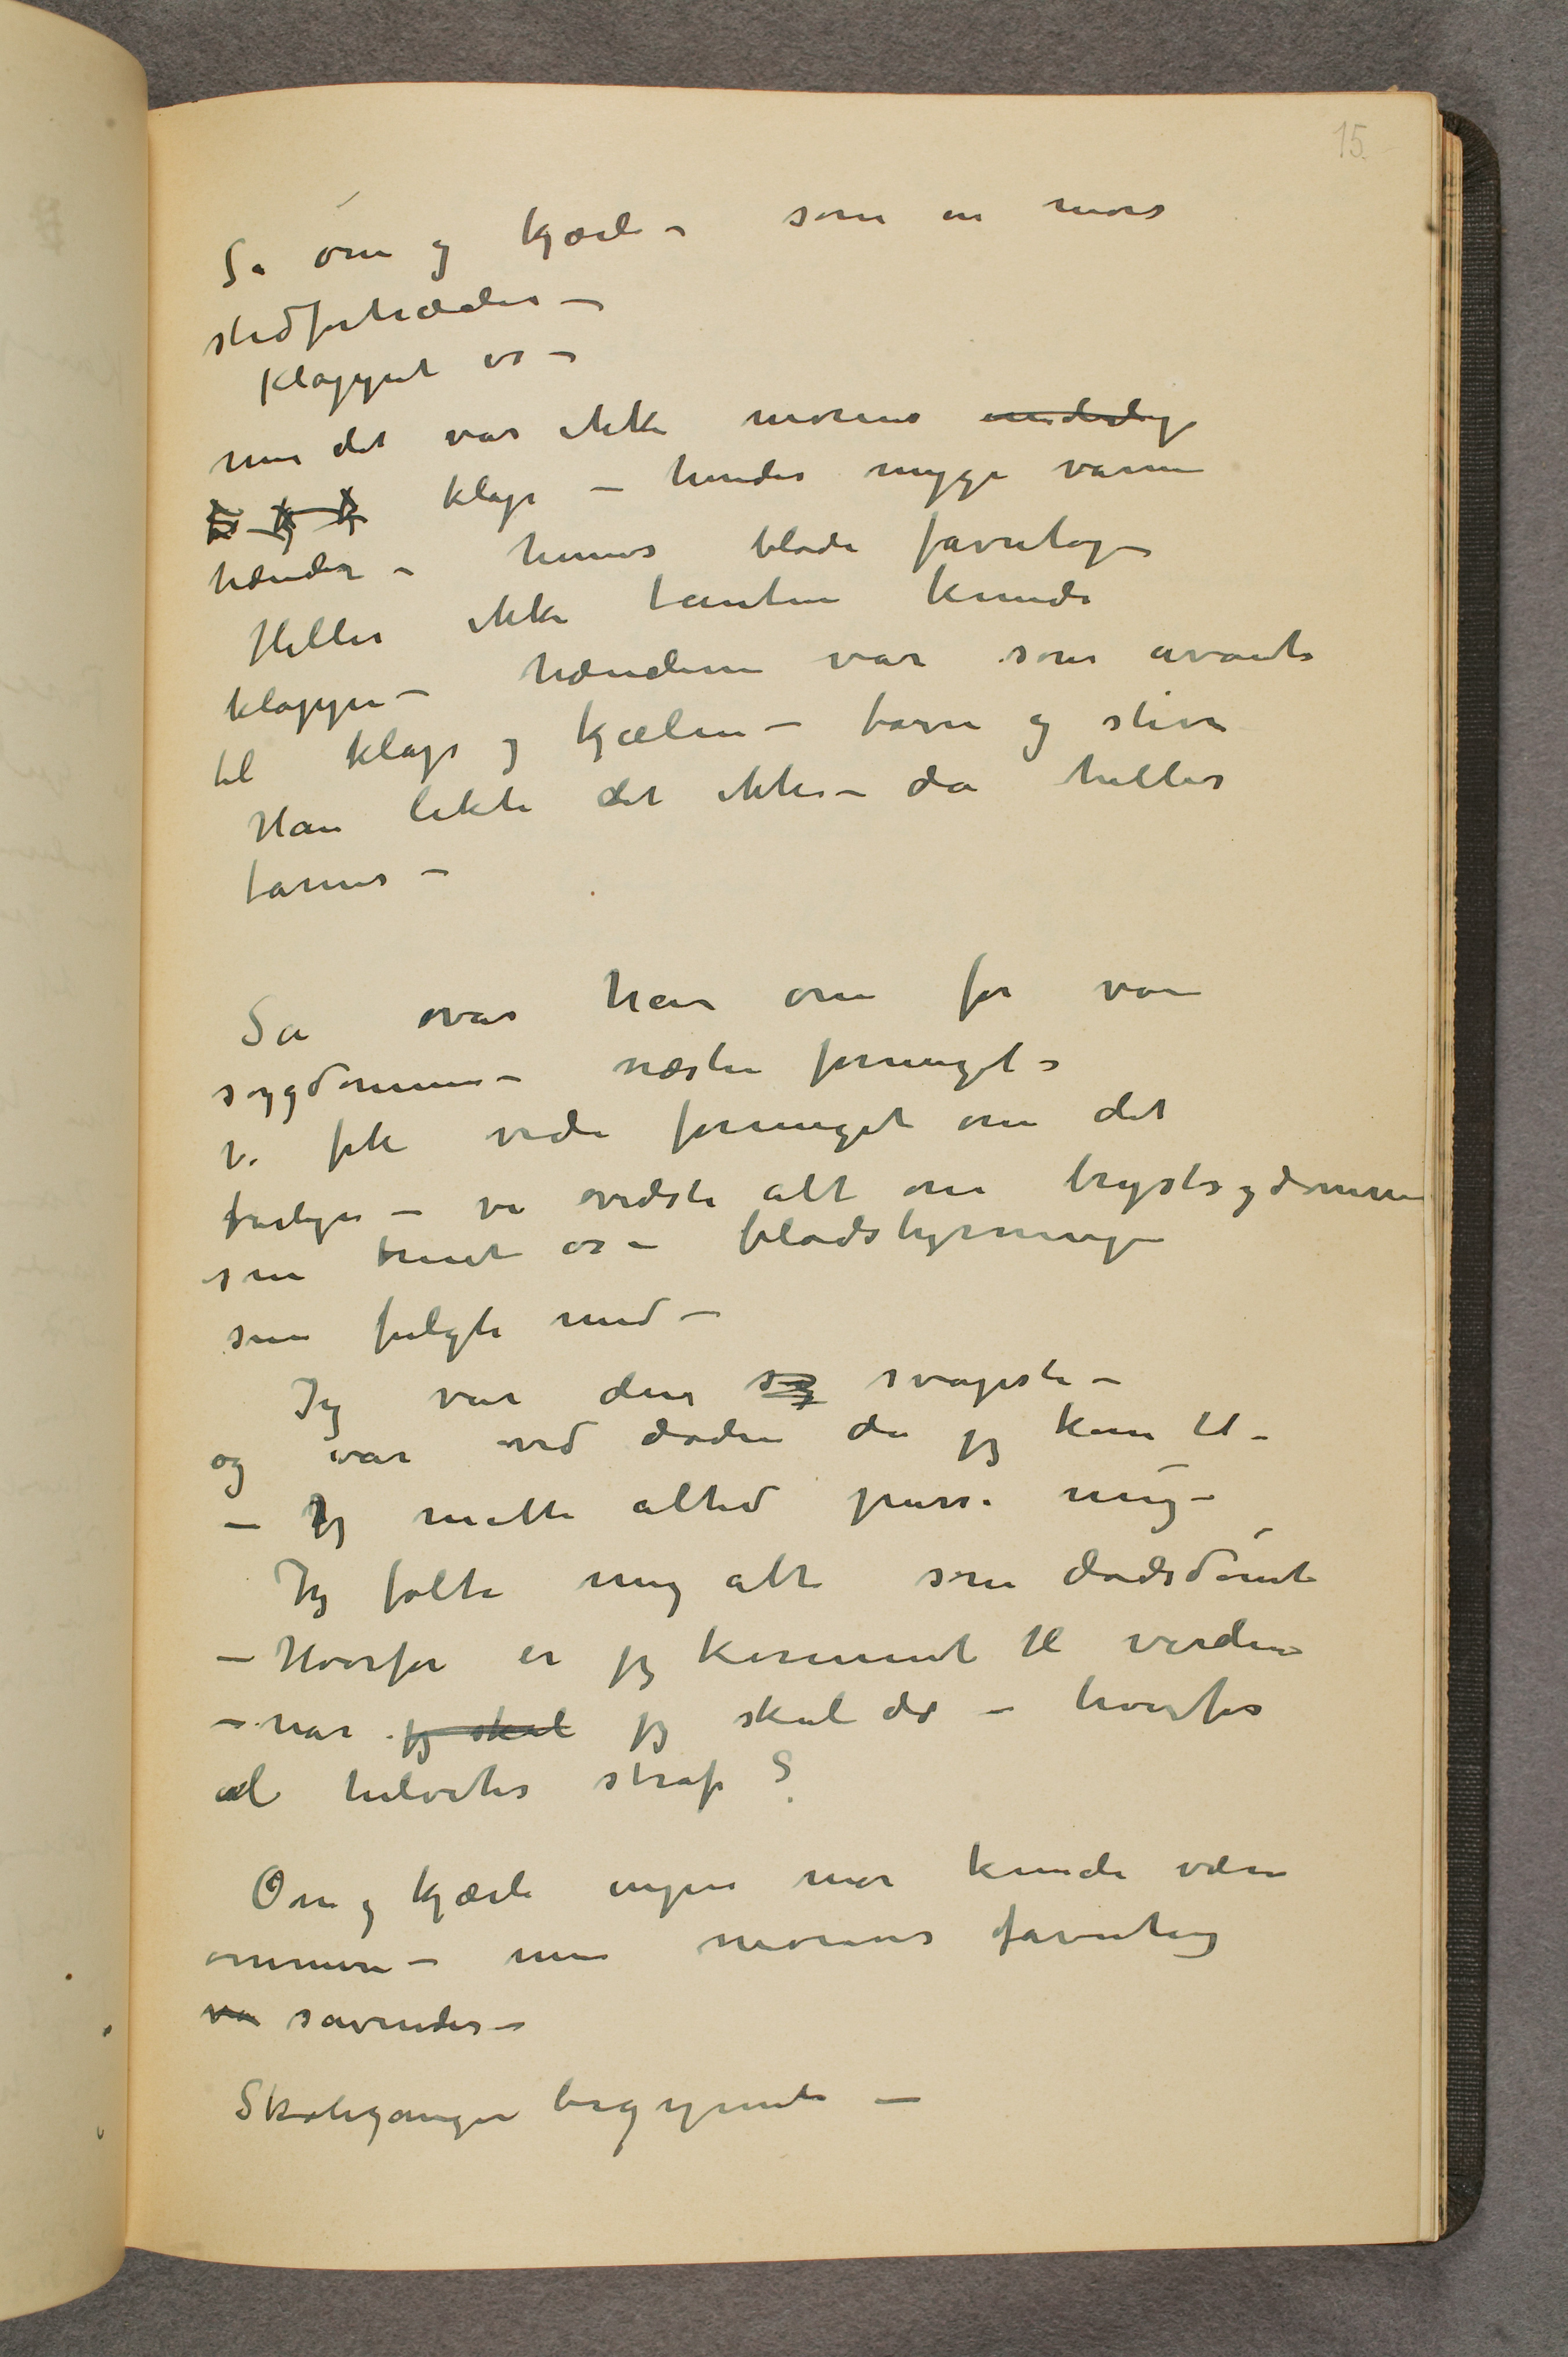 15.
Så øm og kjærl – som en mors
stedfortræder –
Klappet os –
men det var ikke morens underlige
klap – hendes mygge varme
hænder – hennes bløde favntag –
Heller ikke tanten kunde
klappe – hændene var som uvante
til klap og kjælen – bare og stive
Han likte det ikke – da heller
tantes –
Så var han øm for vor
sygdomme – næsten formeget –
Vi fik vide formeget om det
farlige – vi vidste alt om brystsygdommen
som truet os – blodstyrtningen
som fulgte med –
Jeg var den sy svageste –
og var ved døden da jeg kom til –
– Jeg måtte altid passe mig –
Jeg følte mig alt som dødsdømt
– Hvorfor er jeg kommet til verden
– når jeg skal jeg skal dø – hvorfor
al helvetes straf ?
Øm og kjærli ingen mor kunde være
ømmere – men morens favntag
va savnedes –
Skolegangen begynnte –